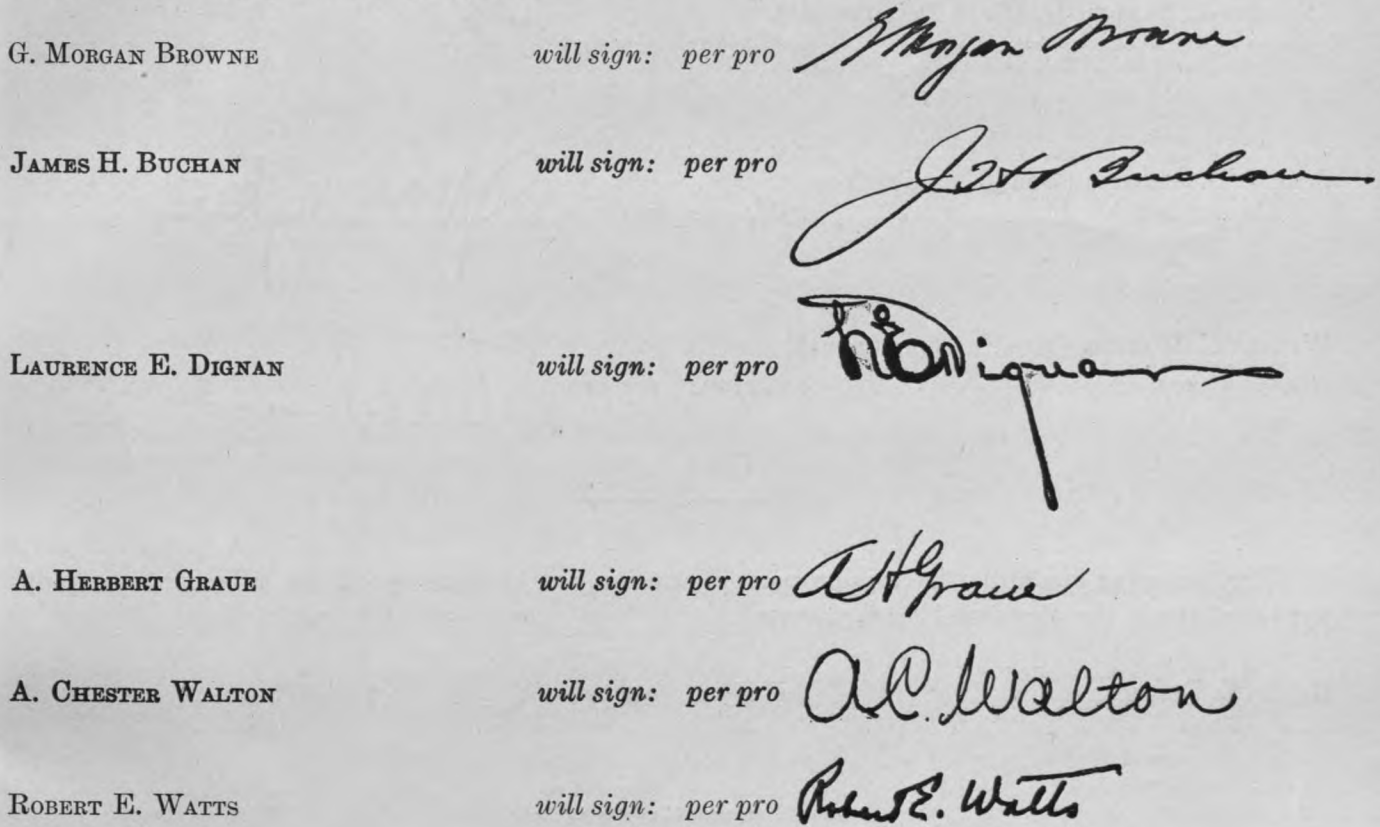 G. MORGAN BROWNE will sign: per pro G Morgan Browne
JAMES H. BUCHAN will sign: per pro J H Buchan
LAURENCE E. DIGNAN will sign: per pro L E Dignan
A. HERBERT GRAUE will sign: per pro A H Graue
A. CHESTER WALTON will sign: per pro A.C. Walton
ROBERT E. WATTS will sign: per pro Robert E. Watts